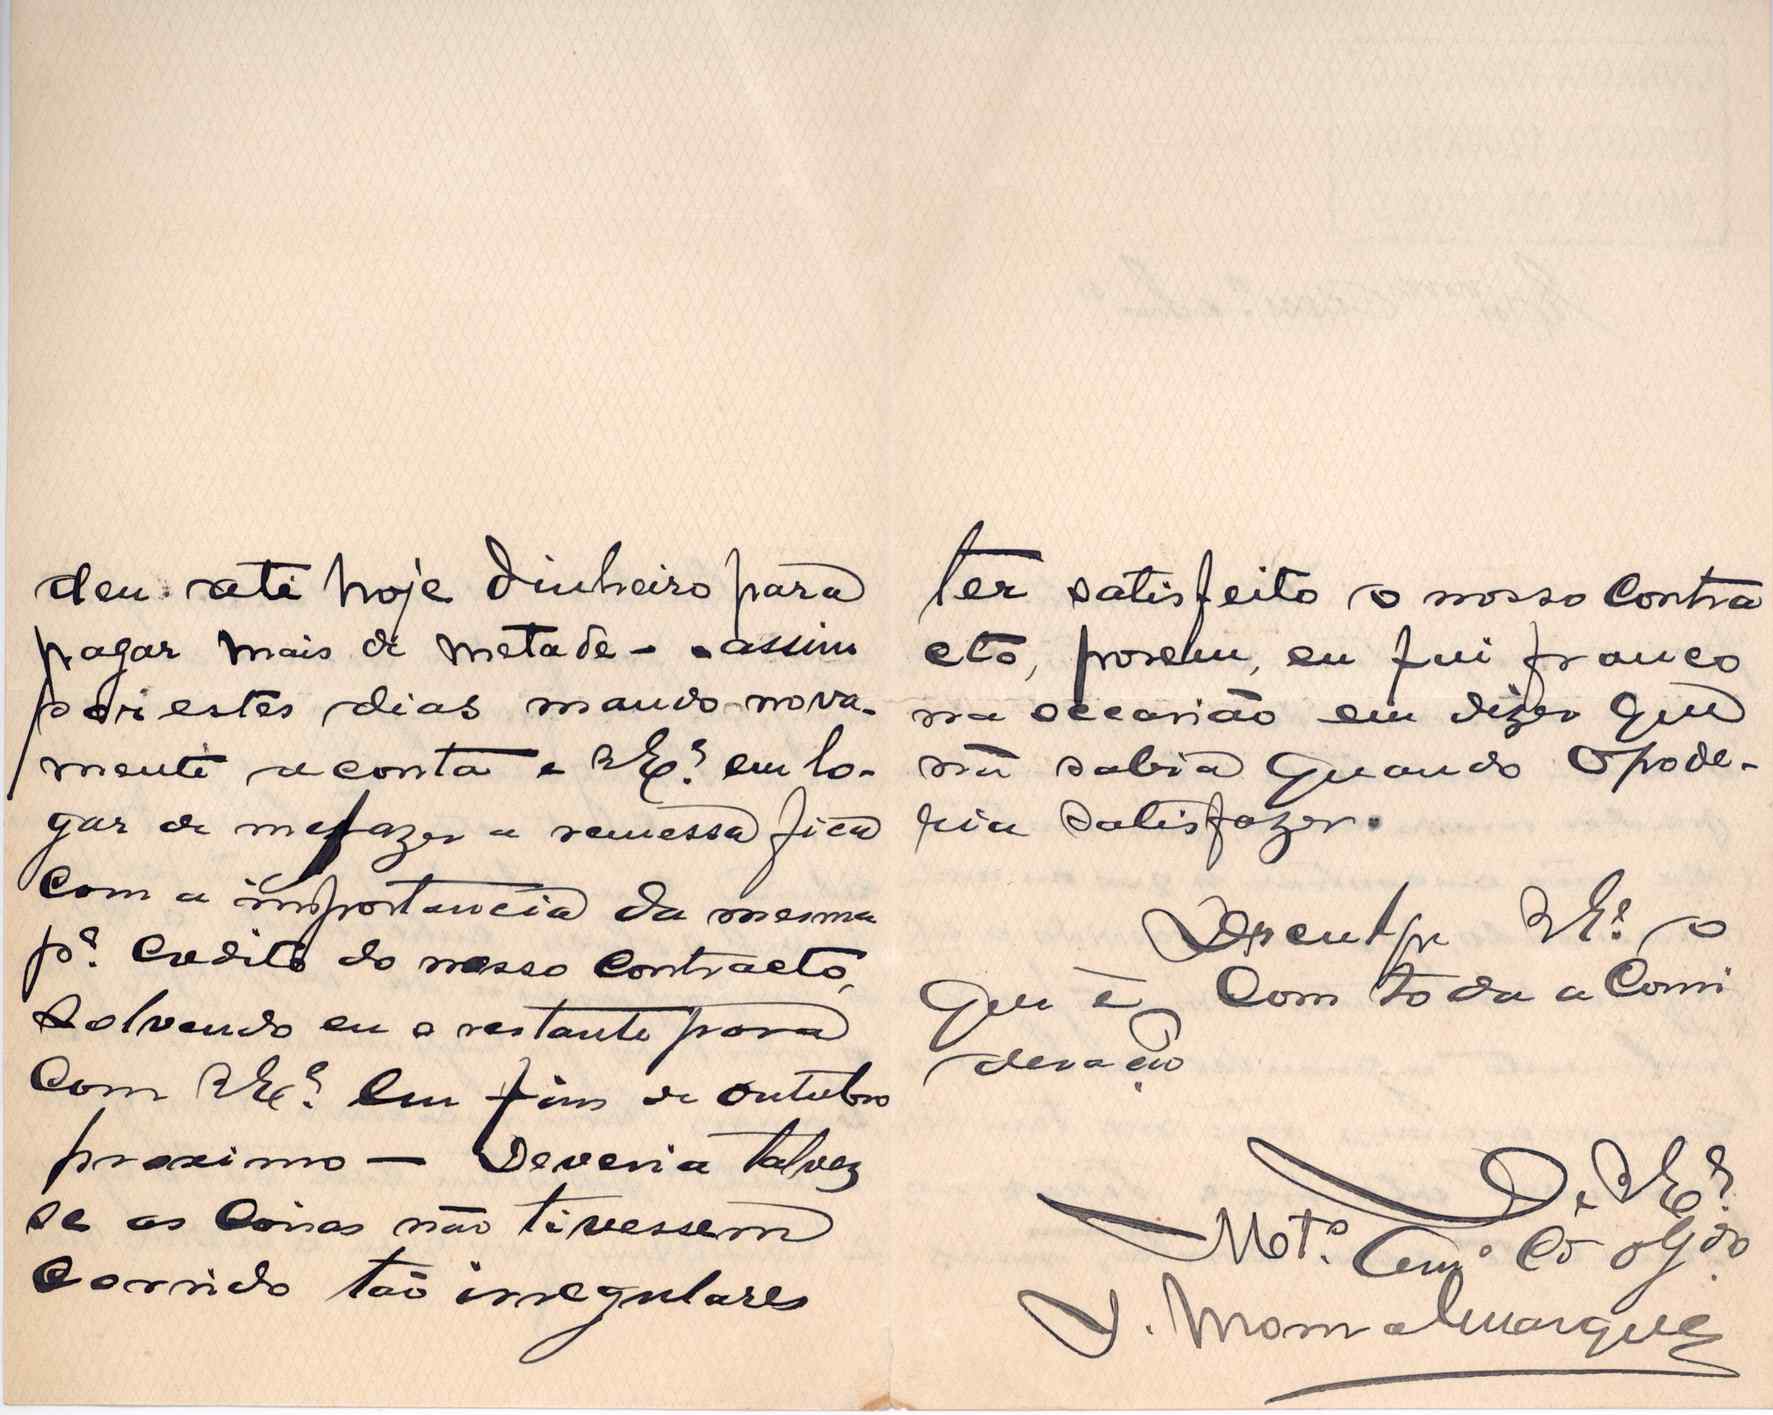 deu até hoje dinheiro para
pagar mais de metade - assim
por estes dias mando nova-
mente a conta e VExª. em lo-
gar de me fazer a remessa fica
com a importancia da mesma
pª. credito do nosso contracto,
solvendo eu o restante para
com VExª. em fins de outubro
proximo — Deveria talvez
se as coisas não tivessem
corrido tão irregulares
ter satisfeito o nosso contra
cto, porem, eu fui franco
na occasião em dizer que
não sabia quando o pode-
ria satisfazer.
VExª. o
que é, com toda a consi
deração
De VExª.
Mtº. Amº. Cº obgdo